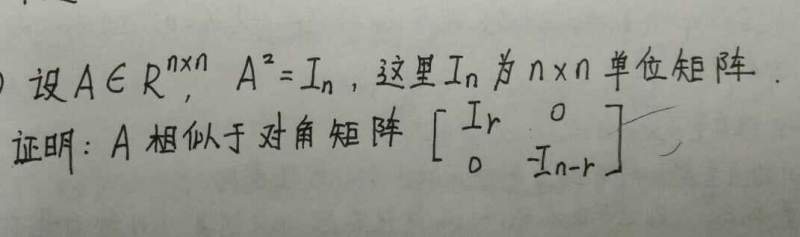 ) 设 A ∈ R^{n×n}, A² = I_n, 这里 I_n 为 n×n 单位矩阵.
证明: A 相似于对角矩阵 [ I_r 0
0 -I_{n-r} ]